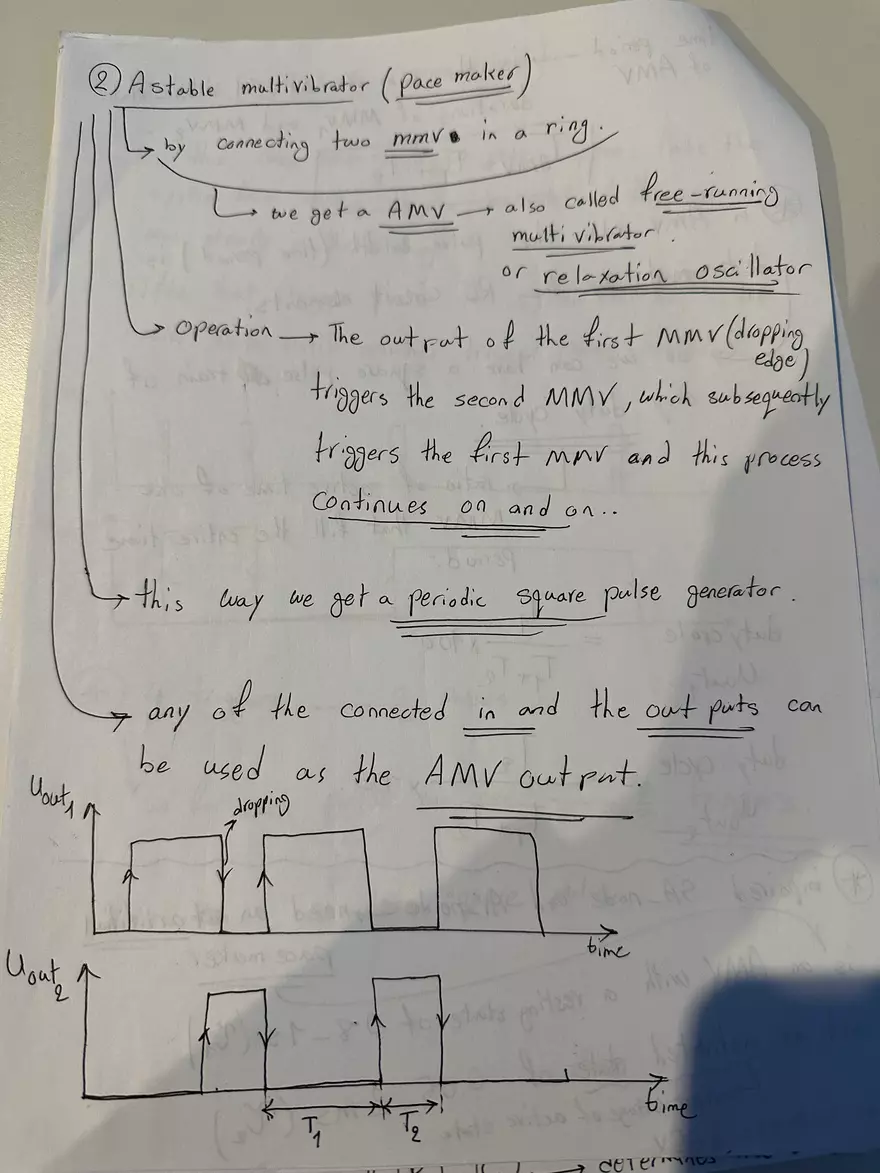 ② Astable multivibrator (pace maker)
↳ by connecting two mmv in a ring.
↳ we get a AMV → also called free-running
multivibrator.
or relaxation oscillator
→ Operation → The output of the first MMV (dropping
edge)
triggers the second MMV, which subsequently
triggers the first MMV and this process
continues on and on..
→ this way we get a periodic square pulse generator.
→ any of the connected in and the out puts can
be used as the AMV output.
Uout1
dropping
time
Uout2
T1 T2
time